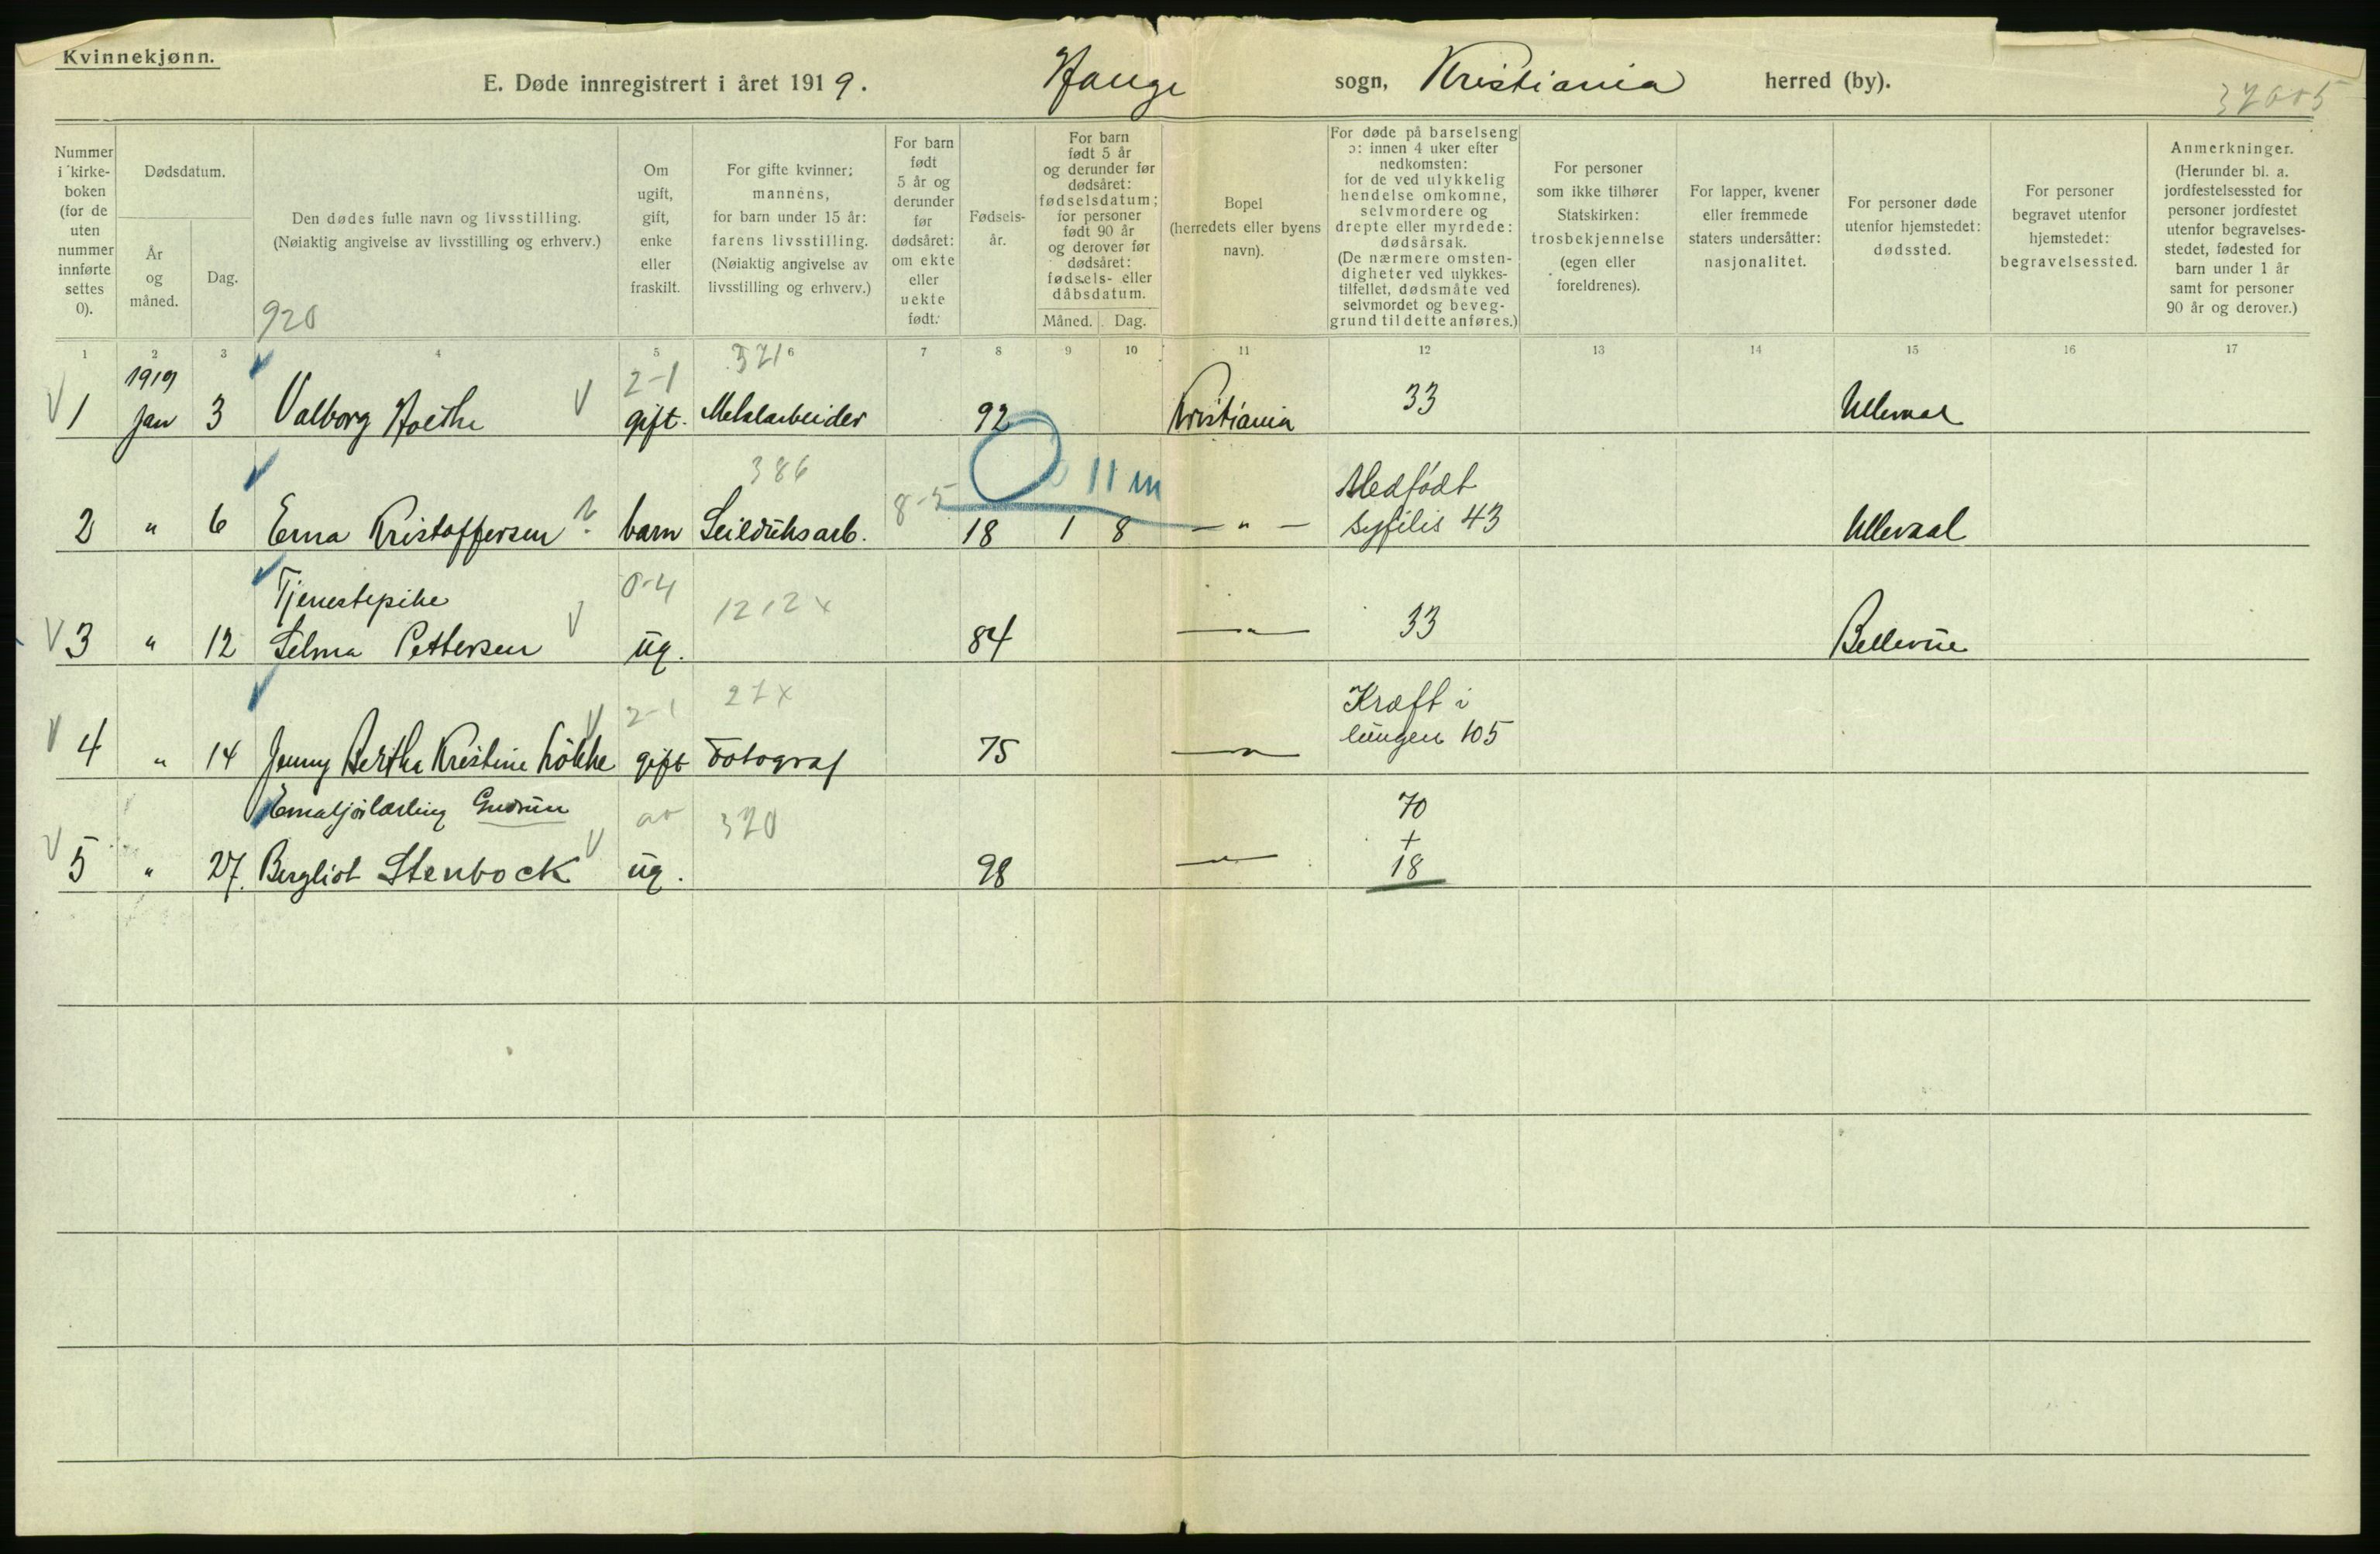 Kvinnekjønn.
E. Døde innregistrert i året 1919. Hauge sogn, Kristiania herred (by).
Nummer i kirkeboken (for de uten nummer innførte settes 0).
Dødsdatum.
År og måned.
Dag.
Den dødes fulle navn og livsstilling. (Nøiaktig angivelse av livsstilling og erhverv.)
920
Om ugift, gift, enke eller fraskilt.
For gifte kvinner; mannens, for barn under 15 år: farens livsstilling. (Nøiaktig angivelse av livsstilling og erhverv.)
For barn født 5 år og derunder før dødsåret: om ekte eller uekte født.
Fødselsår.
For barn født 5 år og derunder før dødsåret: fødselsdatum; for personer født 90 år og derover før dødsåret: fødsels- eller dåbsdatum.
Måned. Dag.
Bopel (herredets eller byens navn).
For døde på barselseng ɔ: innen 4 uker efter nedkomsten: for de ved ulykkelig hendelse omkomne, selvmordere og drepte eller myrdede: dødsårsak. (De nærmere omstendigheter ved ulykkestilfellet, dødsmåte ved selvmordet og beveggrund til dette anføres.)
For personer som ikke tilhører Statskirken: trosbekjennelse (egen eller foreldrenes).
For lapper, kvener eller fremmede staters undersåtter: nasjonalitet.
For personer døde utenfor hjemstedet: dødssted.
For personer begravet utenfor hjemstedet: begravelsessted.
Anmerkninger. (Herunder bl. a. jordfestelsessted for personer jordfestet utenfor begravelsesstedet, fødested for barn under 1 år samt for personer 90 år og derover.)
1 2 3 4 5 6 7 8 9 10 11 12 13 14 15 16 17
1919 2-1 321
1 Jan 3 Valborg gift. Metalarbeider 92 Kristiania 33 Ullevaal
386 11 m Medfødt
2 " 6 Erna Kristoffersen barn Seilduksarb. 8-5 18 1 8 — " — syfilis 43 Ullevaal
Tjenestepike 0-4 1212 x
3 " 12 Selma Pettersen ug. 84 — " — 33 Bellevue
2-1 27 x Kræft i
4 " 14 Jenny Bertha Kristine Løkke gift Fotograf 75 — " — lungen 105
Emaljørlærling Gudrun 320 70
+
5 " 27. Bergliot Stenbock ug. 98 — " — 18